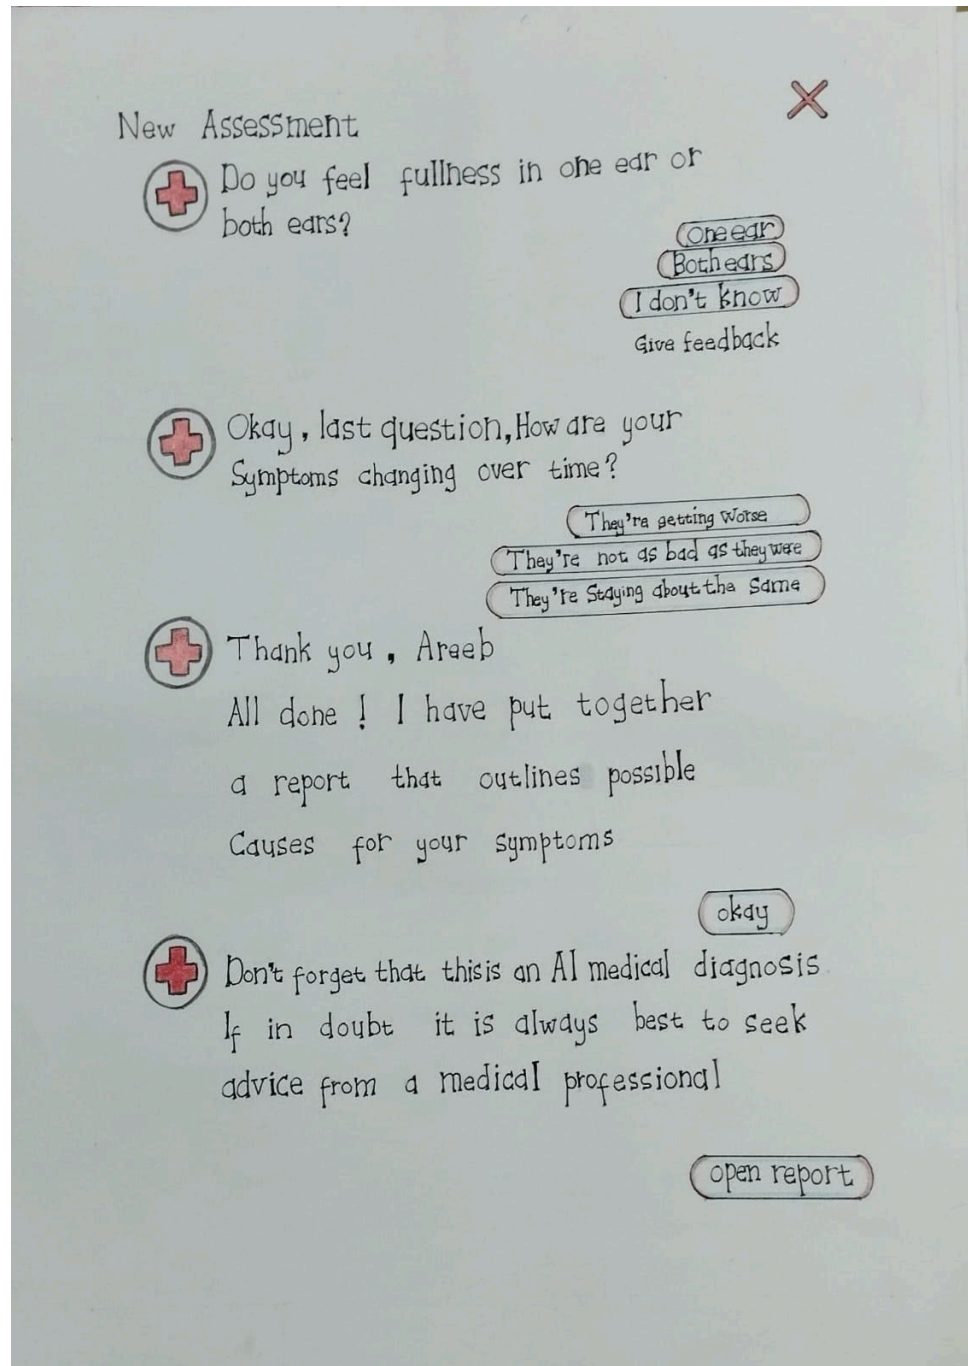 New Assessment
Do you feel fullness in one ear or
both ears?
One ear
Both ears
I don't know
Give feedback
Okay, last question, How are your
Symptoms changing over time?
They're getting worse
They're not as bad as they were
They're Staying about the Same
Thank you, Areeb
All done! I have put together
a report that outlines possible
Causes for your symptoms
okay
Don't forget that this is an AI medical diagnosis
If in doubt it is always best to seek
advice from a medical professional
open report